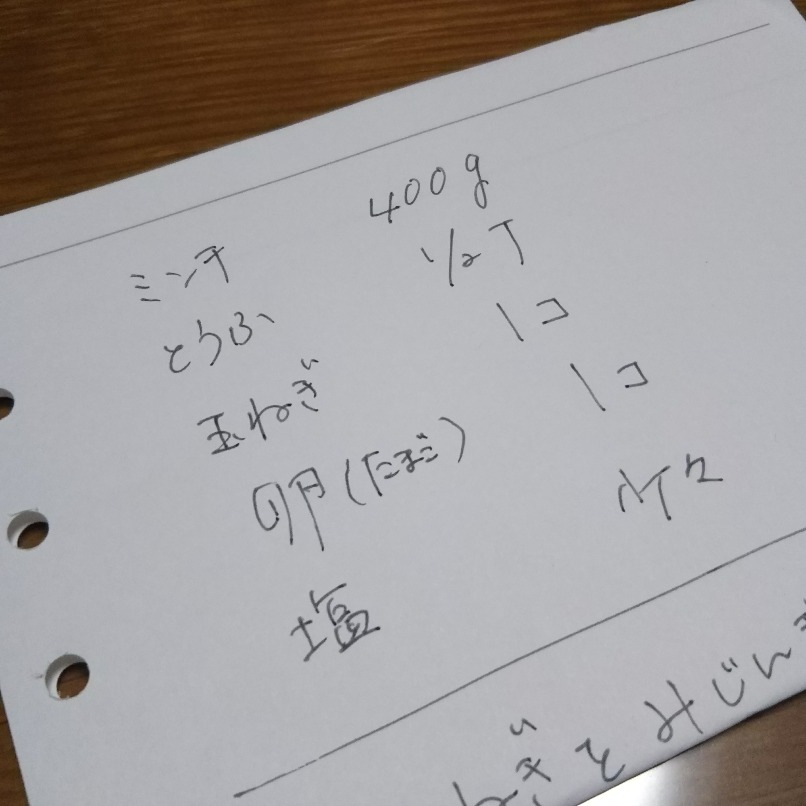 ミンチ 400g
とうふ 1/2T
玉ねぎ 1コ
卵(たまご) 1コ
塩 少々
ねぎをみじん